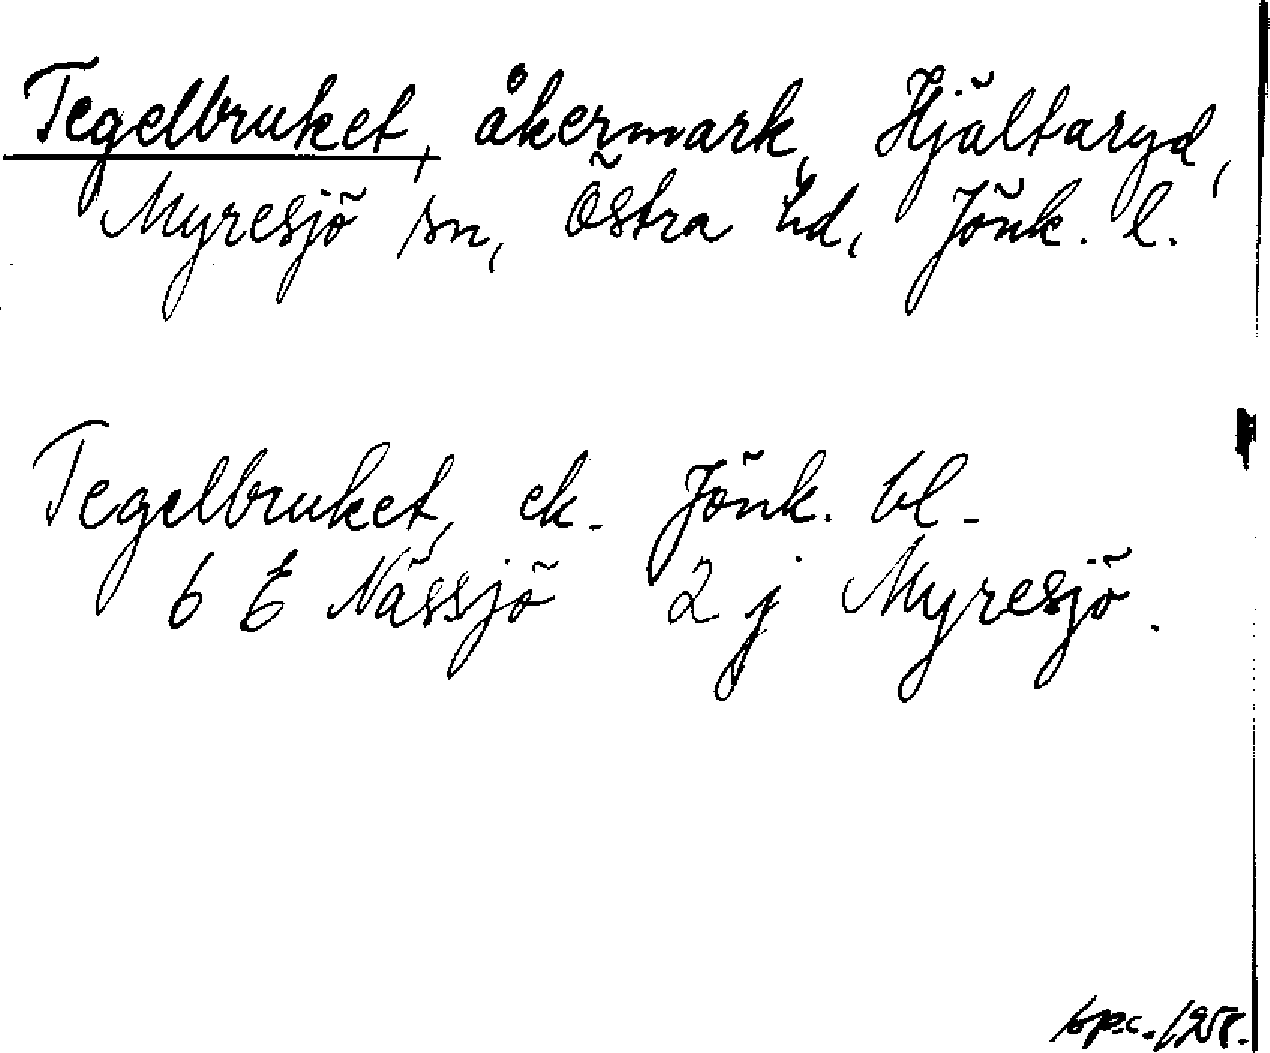 Tegelbruket, åkermark, Hjältaryd,
Myresjö sn, Östra hd, Jönk. l.
Tegelbruket, ek. Jönk. bl.
6 E Nässjö 2 j Myresjö.